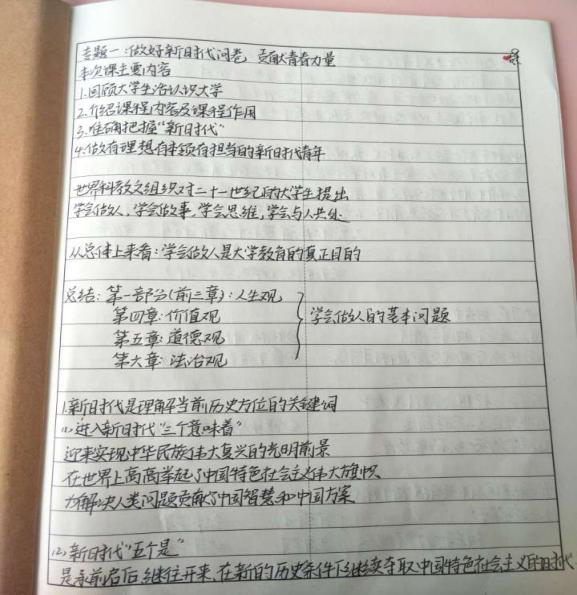 专题一:做好新时代问卷 贡献青春力量
本次课主要内容
1.回顾大学生活认识大学
2.介绍课程内容及课程作用
3.准确把握“新时代”
4.做有理想有本领有担当的新时代青年
世界科教文组织对二十一世纪的大学生提出
学会做人,学会做事,学会思维,学会与人共处
从总体上来看:学会做人是大学教育的真正目的
总结:第一部分(前三章):人生观
第四章:价值观
第五章:道德观
第六章:法治观
学会做人的基本问题
1.新时代是理解当前历史方位的关键词
(1).进入新时代“三个意味着”
迎来实现中华民族伟大复兴的光明前景
在世界上高高举起了中国特色社会主义伟大旗帜
为解决人类问题贡献了中国智慧和中国方案
(2).新时代“五个是”
是承前启后继往开来,在新的历史条件下继续夺取中国特色社会主义的时代